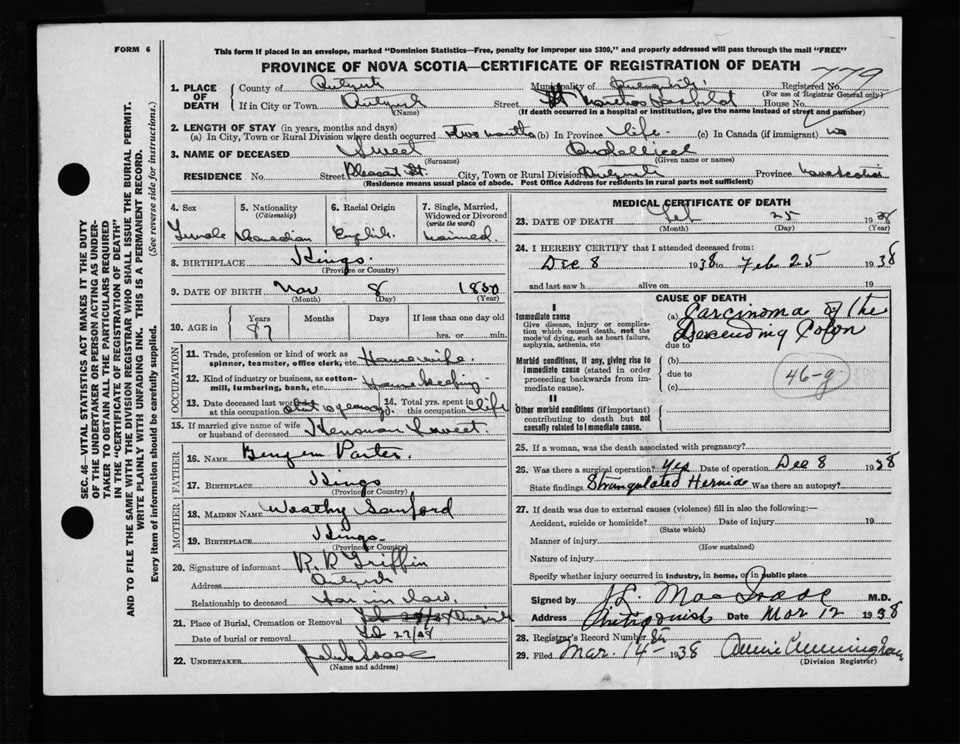 FORM 6
This form if placed in an envelope, marked "Dominion Statistics—Free, penalty for improper use $300," and properly addressed will pass through the mail "FREE"
PROVINCE OF NOVA SCOTIA—CERTIFICATE OF REGISTRATION OF DEATH
779
1. PLACE OF DEATH
County of
Municipality of
Registered No.
(For use of Registrar General only)
If in City or Town
(Name)
Street St Marthas
House No.
(If death occurred in a hospital or institution, give the name instead of street and number)
2. LENGTH OF STAY (in years, months and days)
(a) In City, Town or Rural Division where death occurred two months (b) In Province life (c) In Canada (if immigrant) no
3. NAME OF DECEASED Sweet
(Surname) (Given name or names)
RESIDENCE No. Street Pleasant St. City, Town or Rural Division Province Nova Scotia
(Residence means usual place of abode. Post Office Address for residents in rural parts not sufficient)
4. Sex
Female
5. Nationality
(Citizenship)
Canadian
6. Racial Origin
English
7. Single, Married, Widowed or Divorced
(write the word)
8. BIRTHPLACE Kings
(Province or Country)
9. DATE OF BIRTH Nov 8 1850
(Month) (Day) (Year)
10. AGE in
Years Months Days If less than one day old
87 hrs. or min.
OCCUPATION
11. Trade, profession or kind of work as spinner, teamster, office clerk, etc. Housewife
12. Kind of industry or business, as cotton-mill, lumbering, bank, etc. Housekeeping
13. Date deceased last worked at this occupation about 10 years ago
14. Total yrs. spent in this occupation life
15. If married give name of wife or husband of deceased Sweet
FATHER
16. NAME Porter
17. BIRTHPLACE Kings
(Province or Country)
MOTHER
18. MAIDEN NAME Sanford
19. BIRTHPLACE Kings
(Province or Country)
20. Signature of informant Griffin
Address
Relationship to deceased in law
21. Place of Burial, Cremation or Removal
Date of burial or removal
22. UNDERTAKER
(Name and address)
MEDICAL CERTIFICATE OF DEATH
23. DATE OF DEATH Feb 25 1938
(Month) (Day) (Year)
24. I HEREBY CERTIFY that I attended deceased from:
Dec 8 1938 to Feb 25 1938
and last saw h alive on 19
CAUSE OF DEATH
I
Immediate cause
Give disease, injury or complication which caused death, not the mode of dying, such as heart failure, asphyxia, asthenia, etc
(a) Carcinoma of the
Descending Colon
due to
Morbid conditions, if any, giving rise to immediate cause (stated in order proceeding backwards from immediate cause).
(b)
due to
(c)
46-g
II
Other morbid conditions (if important) contributing to death but not causally related to immediate cause.
25. If a woman, was the death associated with pregnancy?
26. Was there a surgical operation? Yes Date of operation Dec 8 1938
State findings Strangulated Hernia Was there an autopsy?
27. If death was due to external causes (violence) fill in also the following:—
Accident, suicide or homicide? Date of injury 19
(State which)
Manner of injury
(How sustained)
Nature of injury
Specify whether injury occurred in industry, in home, or in public place
Signed by M.D.
Address Antigonish Date Mar 12 1938
28. Registrar's Record Number
29. Filed Mar. 14 1938 Cunningham
(Division Registrar)
SEC. 46—VITAL STATISTICS ACT MAKES IT THE DUTY
OF THE UNDERTAKER OR PERSON ACTING AS UNDERTAKER TO OBTAIN ALL THE PARTICULARS REQUIRED
IN THE "CERTIFICATE OF REGISTRATION OF DEATH"
AND TO FILE THE SAME WITH THE DIVISION REGISTRAR WHO SHALL ISSUE THE BURIAL PERMIT.
WRITE PLAINLY WITH UNFADING INK. THIS IS A PERMANENT RECORD.
Every item of information should be carefully supplied. (See reverse side for instructions.)